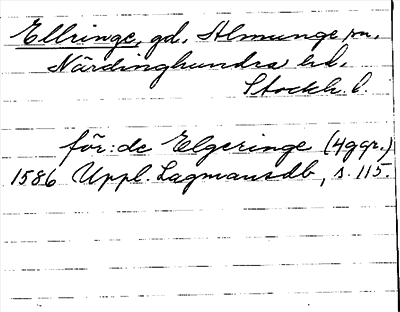 Ellringe, gd, Almunge sn,
Närdinghundra hd,
Stockh. l.
för: de Elgeringe (4 ggr.)
1586 Uppl. Lagmansdb, s. 115.